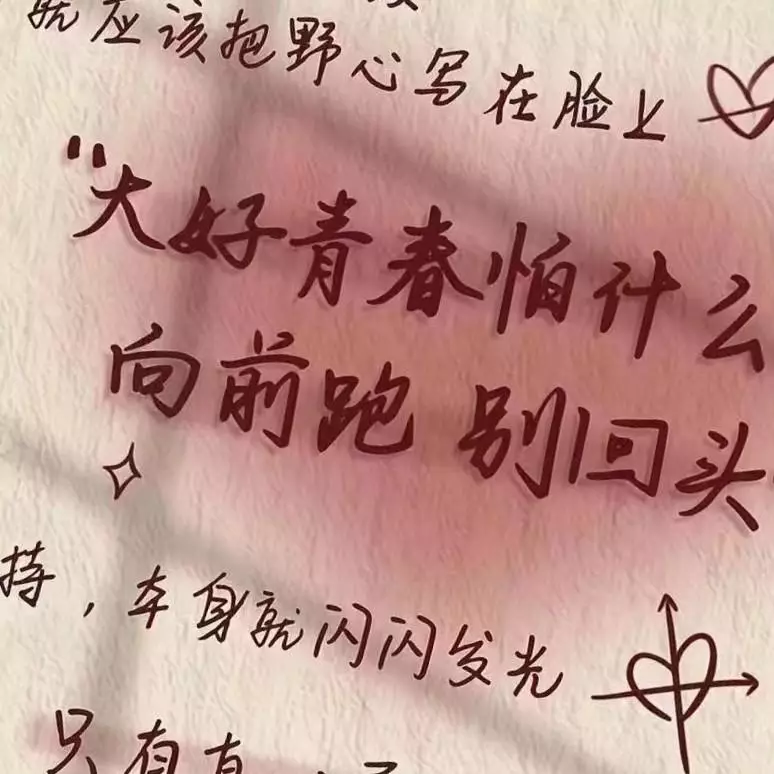 就应该把野心写在脸上
"大好青春怕什么
向前跑 别回头
持，本身就闪闪发光
只有有